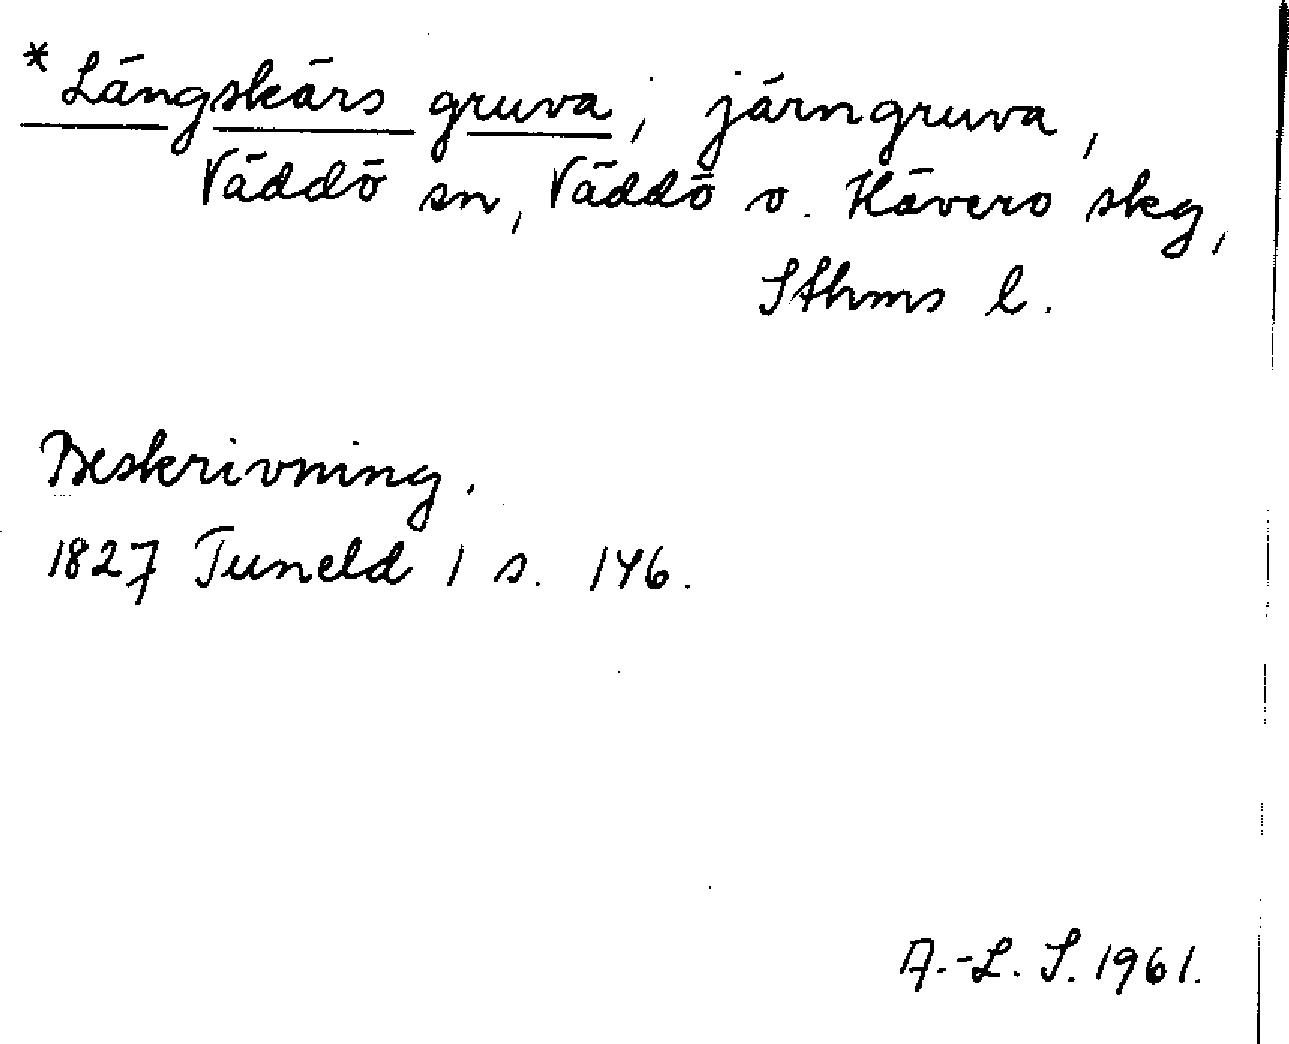 *Längskärs gruva, järngruva,
Väddö sn, Väddö o. Hävero skg,
Sthms l.
Beskrivning.
1827 Tuneld 1 s. 146.
A.-L. S. 1961.